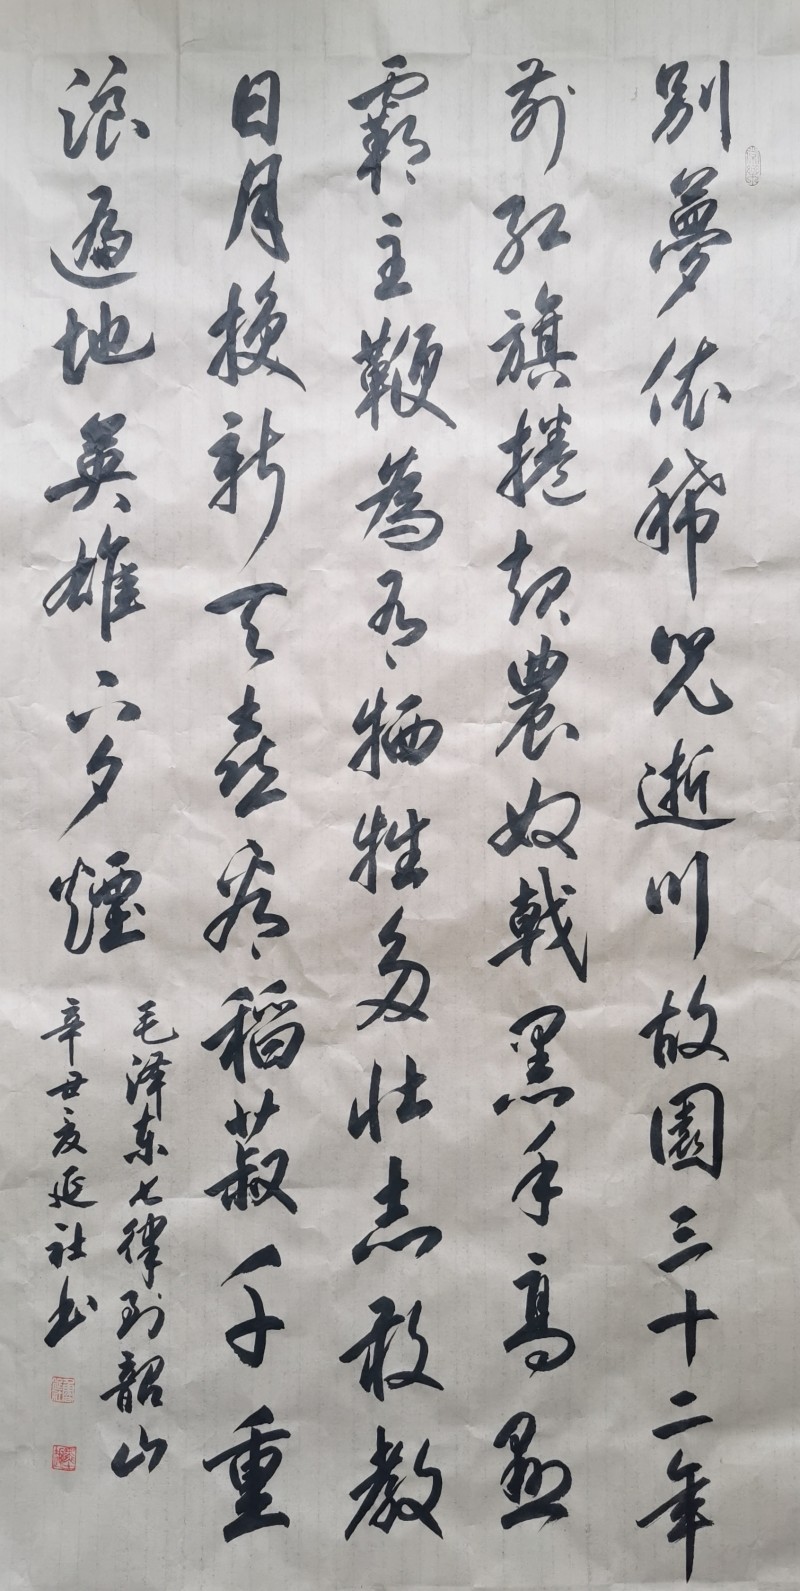 别夢依稀咒逝川故園三十二年
前红旗捲起農奴戟黑手高懸
霸主鞭為有牺牲多壮志敢教
日月换新天喜看稻菽千重
浪遍地英雄下夕煙
毛泽东七律到韶山
辛丑夏延社书